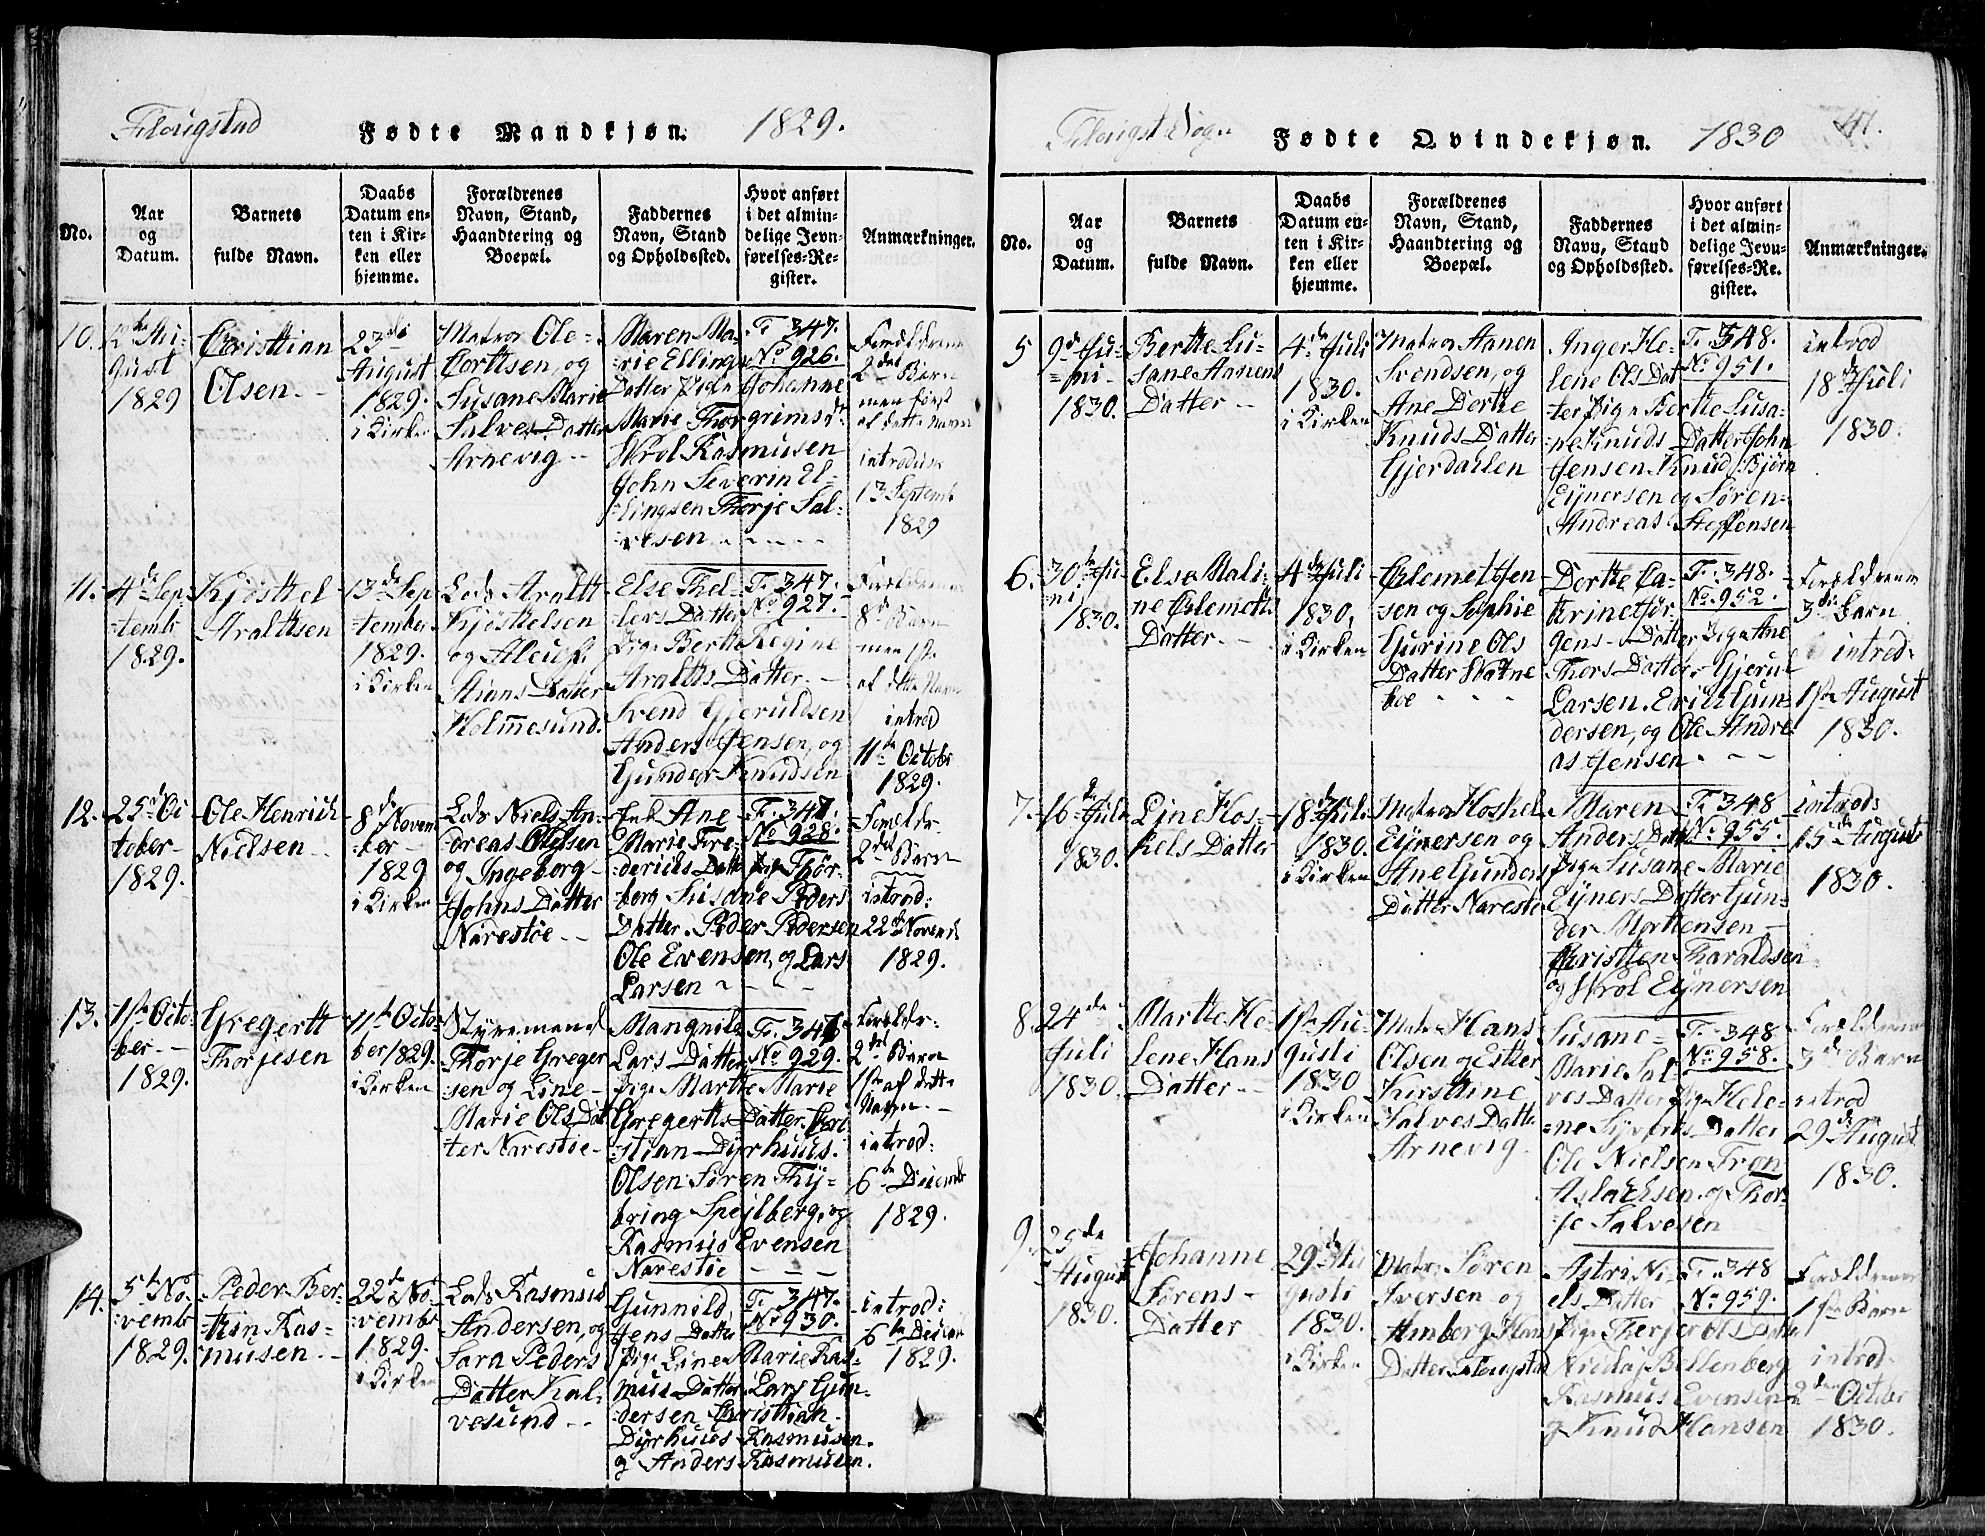 Flougstad
Fødte Mandkjøn. 1829.
No.
Aar
og
Datum.
Barnets
fulde Navn.
Daabs
Datum en-
ten i Kir-
ken eller
hjemme.
Forældrenes
Navn, Stand,
Haandtering og
Boepæl.
Faddernes
Navn, Stand
og Opholdssted.
Hvor anført
i det almin-
delige Jevn-
førelses-Re-
gister.
Anmærkninger.
10.
Au-
gust
1829
Christian
Olsen
23de
August
1829.
i Kirken
Matros Ole
Corttsen, og
Susane Marie
Salves Datter
Arnevig
Maren Ma-
rie Ellings
Datter Pige Johanne
Marie Thorgrims dr
Skrol Rasmusen
John Severin El-
lingsen Thorje Sal-
vesen
T. 347.
No 926.
Forældrenes
2det Barn
men først
af dette Navn
introduc
13 Septemb
1829
11.
4de Sep
temb
1829.
Kjøsttel
Araldtsen
13de Sep
tember
1829.
i Kirken
Lods Araldt
Kjøsttelsen
og
Stians Datter
Holmesund.
Else Thel-
lers Datter
Pige Berthe Regine
Araldts Datter
Svend Gjeruldsen
Anders Jensen, og
Gunder Knudsen
T. 347.
No 927.
Forældrenes
8de Barn
men 1ste
af dette Navn
introd
11te Octobr
1829.
12.
25de Oc
tober
1829.
Ole Henrich
Nielsen
8de Novem
ber
1829
i Kirken
Lods Niels An-
dreas Olsen
og Ingeborg
Johns Datter
Narestøe
Enk. Ane
Marie Fre-
dericks Datt Pige Thor-
berg Susane Peders
Datter. Peder Pedersen
Ole Evensen, og Lars
Larsen
T. 347
No 928.
Forældr
2det Barn
introd:
22de Novemb
1829.
13.
1ste Octo-
ber
1829.
Gregertt
Thorjesen
11te Octo
ber 1829.
i Kirken
Styremand
Thorje Greger
sen og Line
Marie Ols Dat
ter Narestøe
Mangnild
Lars Datter
Pige Marthe Marie
Gregertts Datter. Chri
stian Dyrhuus.
Olsen Søren Thy-
bring Spejlberg, og
Rasmus Evensen
Narestøe
T. 347
No 929.
Forældr:
2det Barn
1ste af dette
Navn
introd:
6te Decemb
1829.
14.
5te No
vembr
1829.
Peder Ber-
thin Ras-
musen
22de No
vembr
1829.
i Kirken
Lods Rasmus
Andersen, og
Sara Peders
Datter Kal-
vesund
Gunnild
Jens Datter
Pige Line Marie Ras-
mus Datter. Lars Gun-
dersen Christian
Dyrhuus Rasmusen.
og Anders Rasmusen.
T. 347.
No 930.
introd:
6te Decem
1829.
Flougst Sogn
Fødte Qvindekjøn. 1830
41.
No.
Aar
og
Datum.
Barnets
fulde Navn.
Daabs
Datum en-
ten i Kir-
ken eller
hjemme.
Forældrenes
Navn, Stand,
Haandtering og
Boepæl.
Faddernes
Navn, Stand
og Opholdssted.
Hvor anført
i det almin-
delige Jevn-
førelses-Re-
gister.
Anmærkninger.
5
9de Ju-
ni
1830.
Berthe Su-
sane Aanens
Datter
4de Juli
1830.
i Kirken
Matros Aanen
Svendsen, og
Ane Dorthe
Knuds Datter
Gjerdalen
Anger He-
lene Ols Dat
ter Pige Berthe Susa-
ne Knuds Datter John
Jensen Knud Bjørn
Eynersen og Søren
Andreas Steffensen
T. 348.
No 951.
introd
18de Juli
1830.
6.
30te Ju-
ni
1830.
Else Mali-
ne Clemetts
Datter
4de Juli
1830.
i Kirken
Clemet Jen
sen og Sophie
Gurine Ols
Datter Watne
boe
Dorthe Ca-
thrine Jør-
gens Datter Pige Ane
Thors Datter Gjerul
Larsen. Erich Gun-
dersen, og Ole Andre
as Jensen
T. 348.
No 952.
Forældrenes
3die Barn
introd:
1ste August
1830.
7.
16de Juli
1830.
Line Hos-
kels Datter
18de Juli
1830.
i Kirken
Matros Hoskel
Eynersen og
Ane Gunders
Datter Narestø
Maren
Anders Datt
Pige Susane Marie
Eyners Datter Gun-
der Mortensen
Christen Tharaldsen
og Skrol Eynersen
T. 348
No 955.
introd:
15de August
1830.
8.
24de
Juli
1830.
Marthe He-
lene Hans
Datter
1ste Au-
gusti
1830
i Kirken
Matr. Hans
Olsen og Esther
Kirsttine
Salves Datter
Arnevig
Susane
Marie Sal
ves Datter Pige Hele-
ne Syverts Datter
Ole Nielsen Tron
Aslachsen. og Thor-
je Salvesen
T. 348
No 958.
Forældrenes
3de Barn
introd
29de August
1830.
9.
25de
August
1830.
Johanne
Sørens
Datter
29de Au
gusti
1830.
i Kirken
Matr. Søren
Iversen og
Amborg Hans
Datter Flougstad
Astri Ni-
els Datter
Pige Therje Ols Datter
Nicolaj Bellenberg
Rasmus Evensen
og Knud Hansen
T. 348
No 959.
Forældrenes
1ste Barn
introd.
2den October
1830.